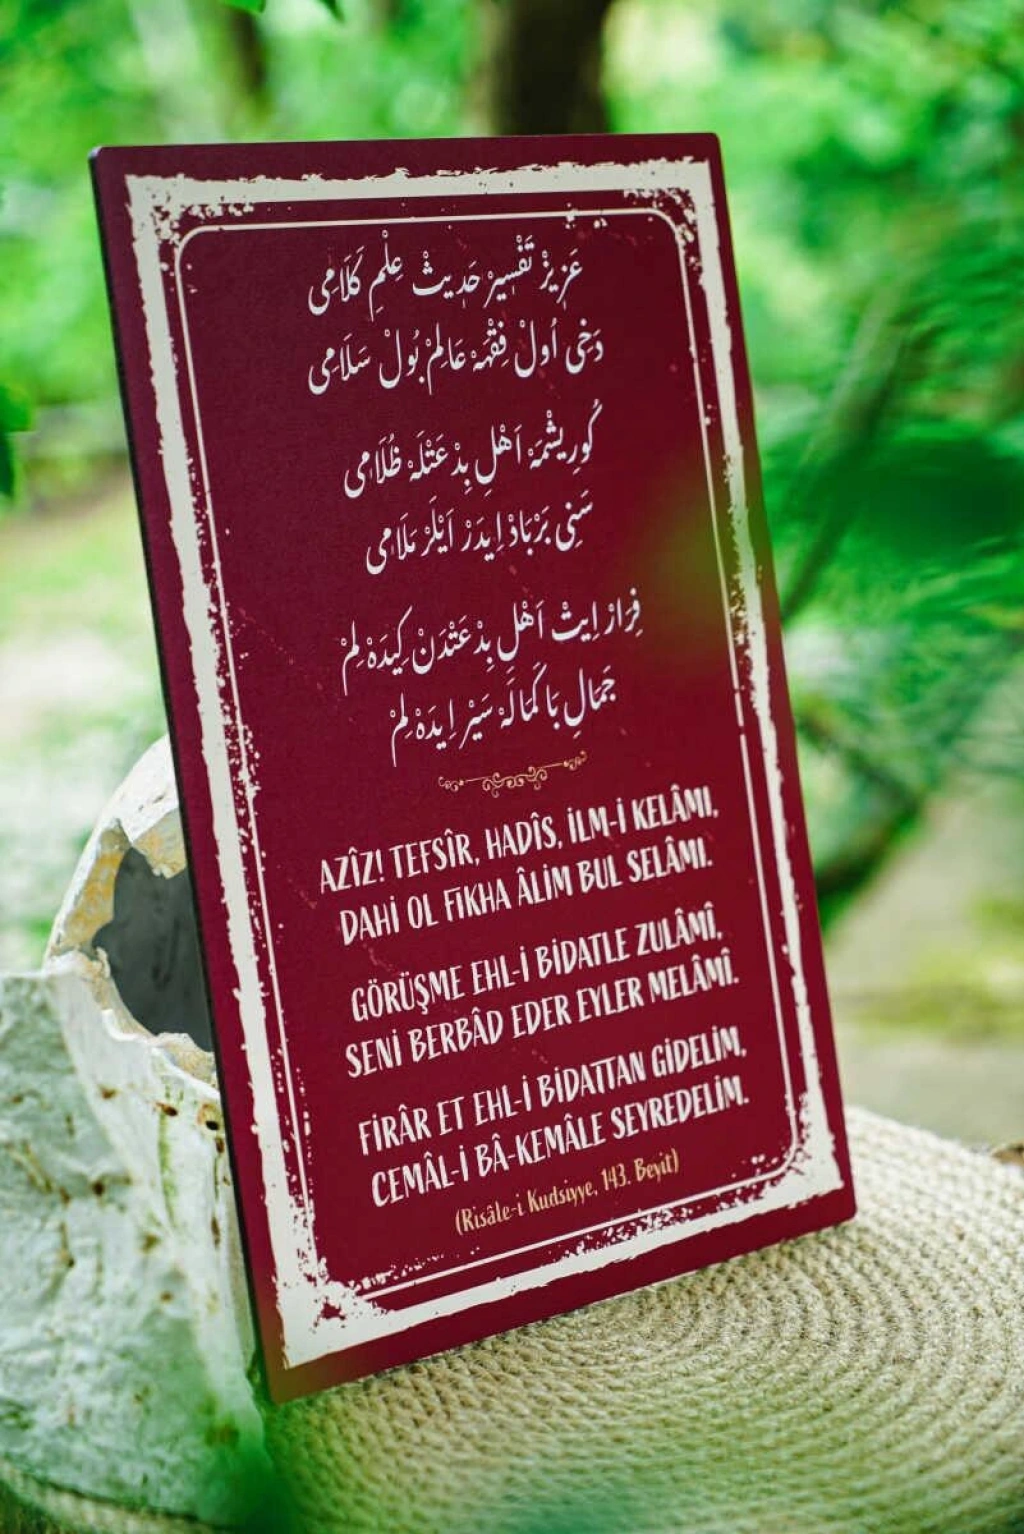 عَزِيزْ تَفْسِيرْ حَدِيثْ عِلْمِ كَلَامِى
دَخِى اُولْ فِقْهَهْ عَالِمْ بُولْ سَلَامِى
كُورِيشْمَهْ اَهْلِ بِدْعَتْلَهْ ظُلَامِى
سَنِى بَرْبَادْ اِيدَرْ اَيْلَرْ مَلَامِى
فِرَارْ اِيتْ اَهْلِ بِدْعَتْدَنْ كِيدَهْ لِمْ
جَمَالِ بَا كَمَالَهْ سَيْر اِيدَهْ لِمْ
AZÎZ! TEFSÎR, HADÎS, İLM-İ KELÂMI,
DAHİ OL FIKHA ÂLİM BUL SELÂMI.
GÖRÜŞME EHL-İ BİDATLE ZULÂMÎ,
SENİ BERBÂD EDER EYLER MELÂMÎ.
FİRÂR ET EHL-İ BİDATTAN GİDELİM,
CEMÂL-İ BÂ-KEMÂLE SEYREDELİM.
(Risâle-i Kudsiyye, 143. Beyit)